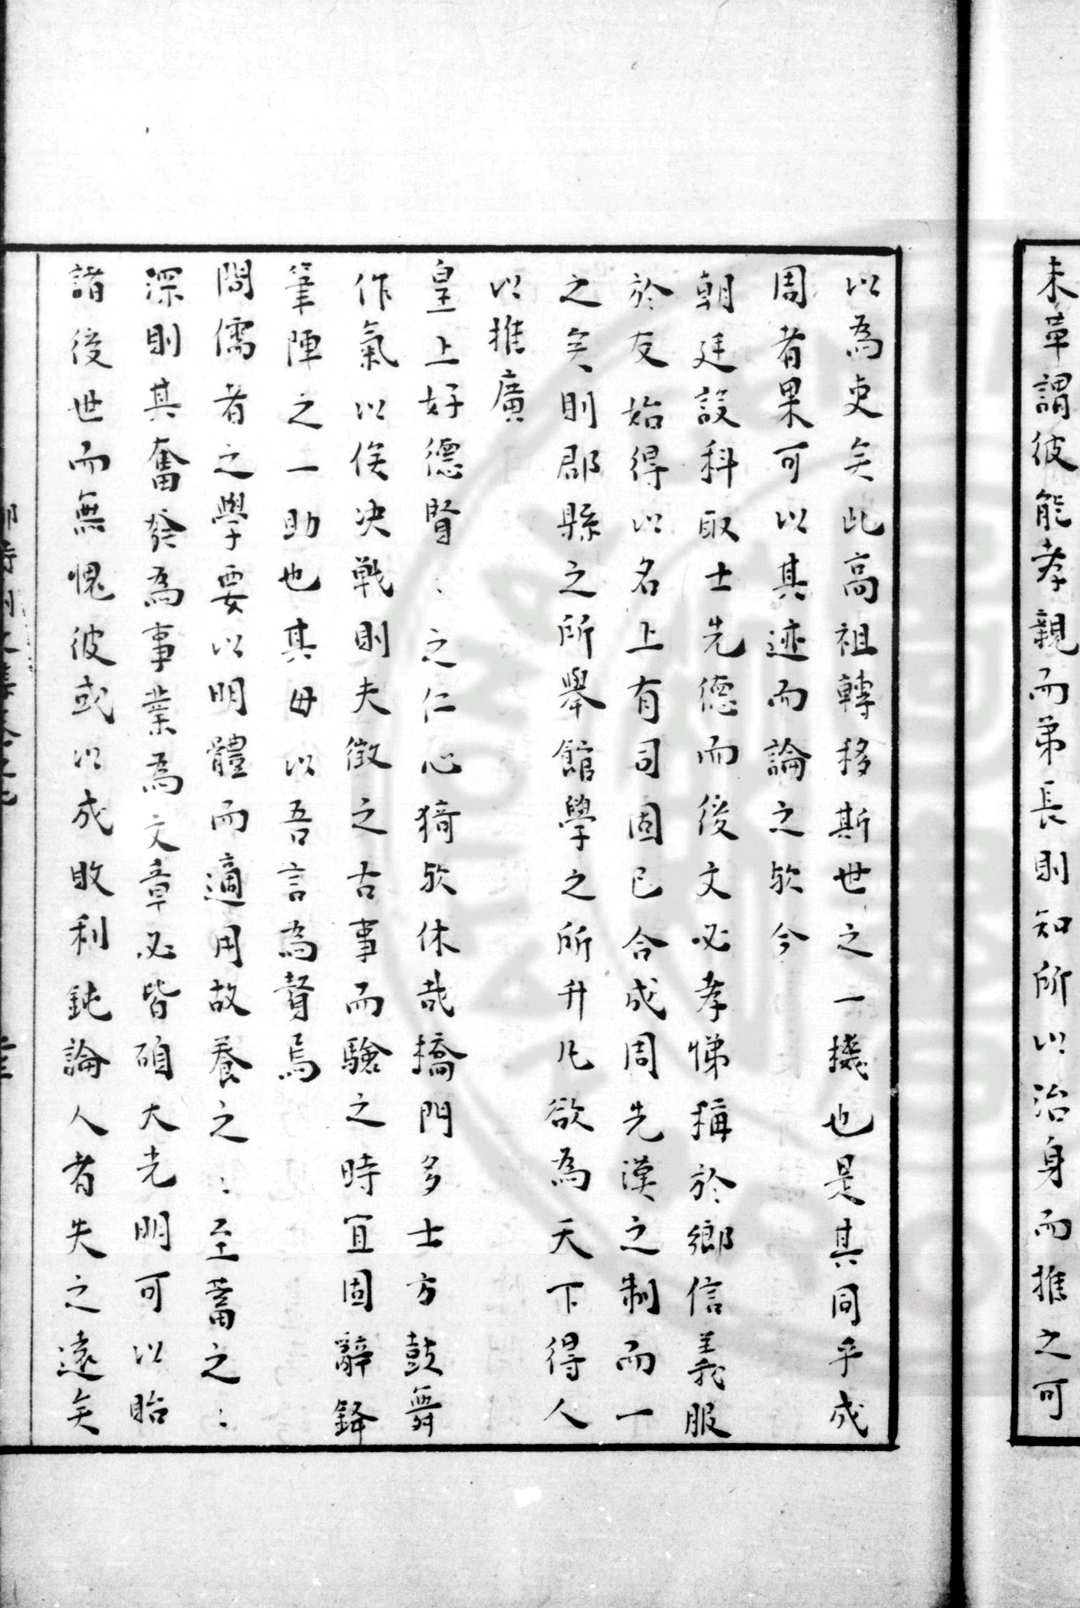 未革謂彼能孝親而弟長則知所以治身而推之可
以為吏矣此高祖轉移斯世之一機也是其同乎成
周者果可以其迹而論之欤今
朝廷設科取士先德而後文必孝悌稱於鄉信義服
於友始得以名上有司固已合成周先漢之制而一
之矣則郡縣之所舉館學之所升凡欲為天下得人
以推廣
皇上好德賢〻之仁心猗欤休哉橋門多士方鼓舞
作氣以俟决戰則夫徵之古事而驗之時宜固辭鋒
筆陣之一助也其毋以吾言為贅焉
問儒者之學要以明體而適用故養之〻至蓄之〻
深則其奮發為事業為文章必皆碩大光明可以貽
諸後世而無愧彼或以成敗利鈍論人者失之遠矣